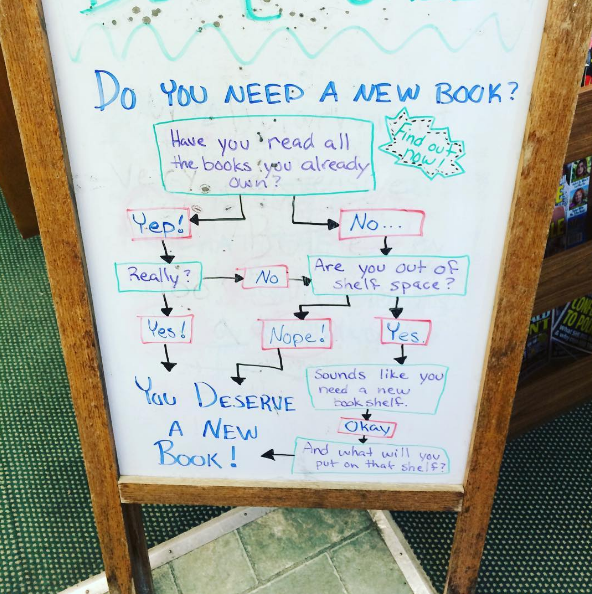 DO YOU NEED A NEW BOOK?
Find out
now!
Have you read all
the books you already
own?
Yep!
No...
Really?
No
Are you out of
shelf space?
Yes!
Nope!
Yes.
Sounds like you
need a new
bookshelf.
Okay
And what will you
put on that shelf?
YOU DESERVE
A NEW
BOOK!